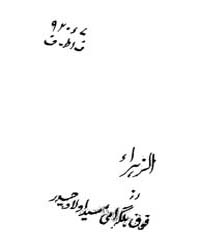 ۹۲۰۶۷
ف اط-ف
الزہراء
از
فوق بلگرامی سید اولاد حیدر